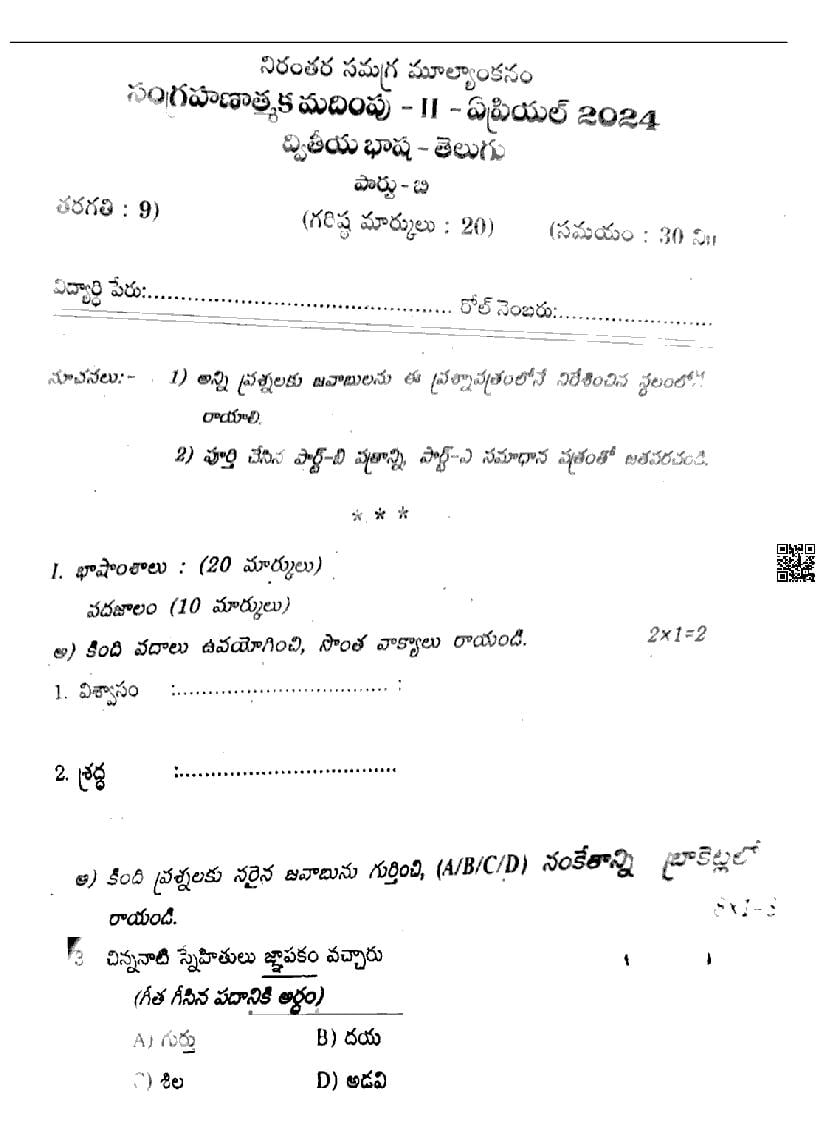 నిరంతర సమగ్ర మూల్యాంకనం
సంగ్రహణాత్మక మదింపు - II - ఏప్రియల్ 2024
ద్వితీయ భాష - తెలుగు
పార్టు - బి
తరగతి : 9) (గరిష్ఠ మార్కులు : 20) (సమయం : 30 ని॥
విద్యార్థి పేరు:.................................................. రోల్ నెంబరు:.........................
సూచనలు:- 1) అన్ని ప్రశ్నలకు జవాబులను ఈ ప్రశ్నాపత్రంలోనే నిర్దేశించిన స్థలంలోనే
రాయాలి.
2) పూర్తి చేసిన పార్ట్-బి పత్రాన్ని, పార్ట్-ఎ సమాధాన పత్రంతో జతపరచండి.
* * *
I. భాషాంశాలు : (20 మార్కులు)
పదజాలం (10 మార్కులు)
అ) కింది పదాలు ఉపయోగించి, సొంత వాక్యాలు రాయండి. 2×1=2
1. విశ్వాసం :................................... :
2. శ్రద్ధ :...................................
ఆ) కింది ప్రశ్నలకు సరైన జవాబును గుర్తించి, (A/B/C/D) సంకేతాన్ని బ్రాకెట్లలో
రాయండి. 8×1=8
3 చిన్ననాటి స్నేహితులు జ్ఞాపకం వచ్చారు ( )
(గీత గీసిన పదానికి అర్థం)
A) గుర్తు B) దయ
C) శిల D) అడవి